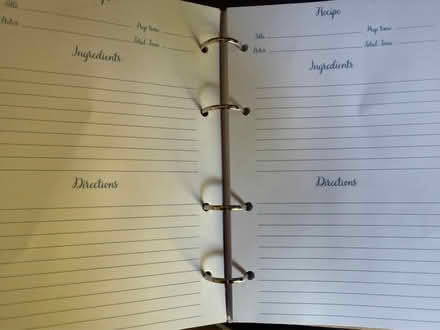 Title
Prep Time
Notes
Total Time
Ingredients
Directions
Recipe
Title
Prep Time
Notes
Total Time
Ingredients
Directions